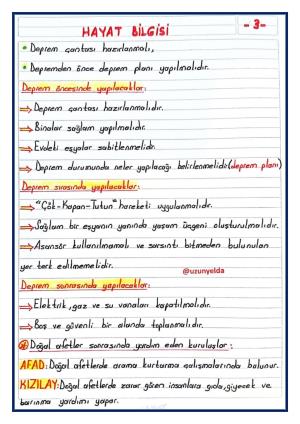 HAYAT BİLGİSİ
-3-
• Deprem çantası hazırlanmalı,
• Depremden önce deprem planı yapılmalıdır.
Deprem öncesinde yapılacaklar:
→ Deprem çantası hazırlanmalıdır.
→ Binalar sağlam yapılmalıdır.
→ Evdeki eşyalar sabitlenmelidir.
→ Deprem durumunda neler yapılacağı belirlenmelidir(deprem planı)
Deprem sırasında yapılacaklar:
→ "Çök-Kapan-Tutun" hareketi uygulanmalıdır.
→ Sağlam bir eşyanın yanında yaşam üçgeni oluşturulmalıdır.
→ Asansör kullanılmamalı ve sarsıntı bitmeden bulunulan
yer terk edilmemelidir.
@uzunyelda
Deprem sonrasında yapılacaklar:
→ Elektrik, gaz ve su vanaları kapatılmalıdır.
→ Boş ve güvenli bir alanda toplanmalıdır.
* Doğal afetler sonrasında yardım eden kuruluşlar:
AFAD: Doğal afetlerde arama kurtarma çalışmalarında bulunur.
KIZILAY: Doğal afetlerde zarar gören insanlara gıda, giyecek ve
barınma yardımı yapar.